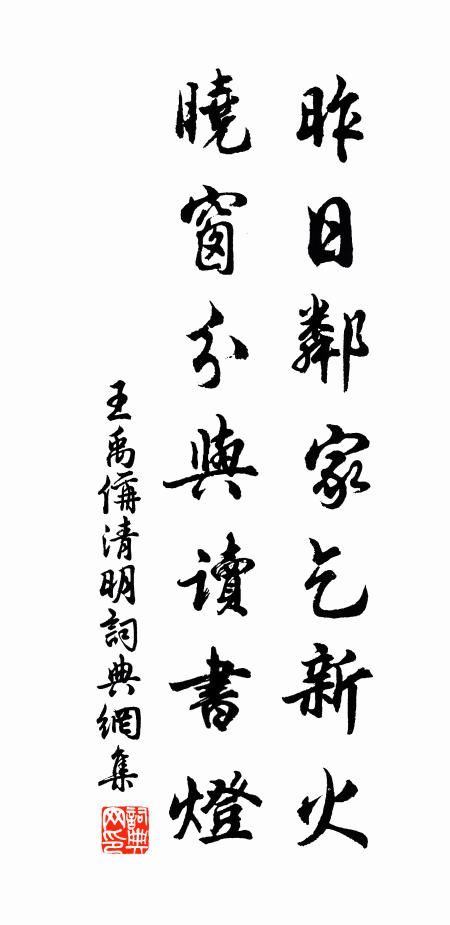 昨日鄰家乞新火
曉窗分與讀書燈
王禹偁清明詞典網集
詞典网印